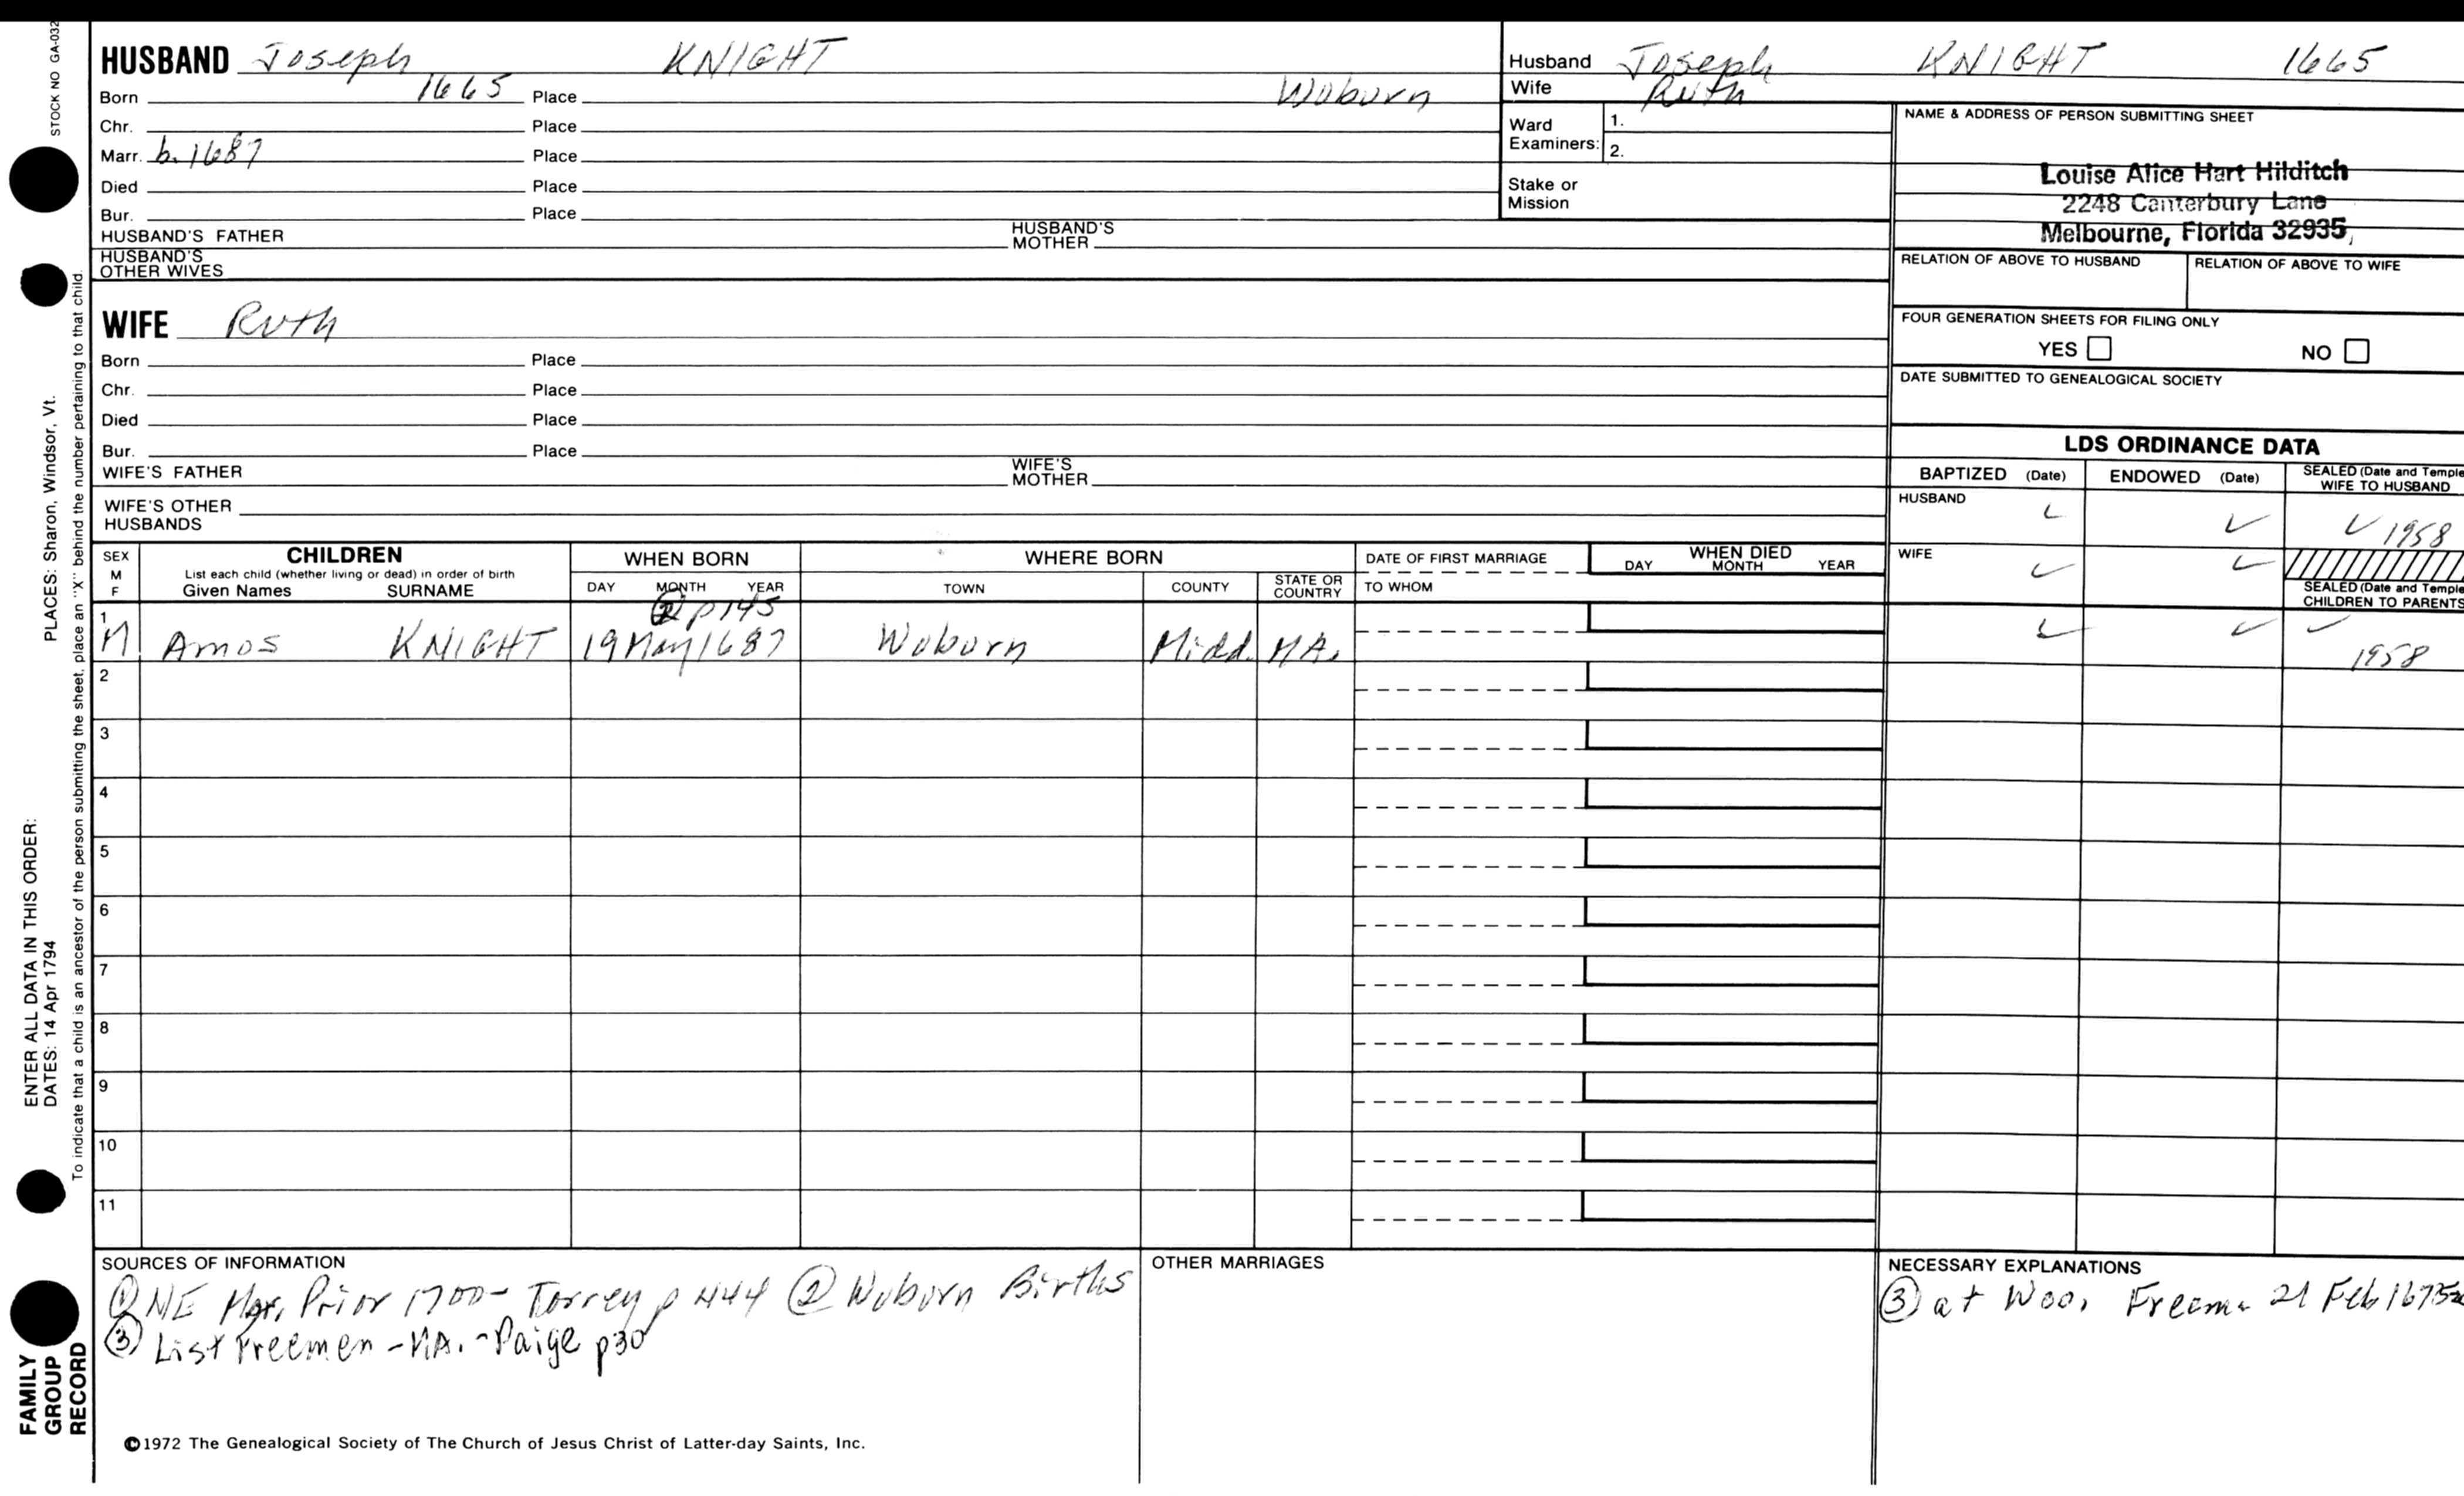 STOCK NO GA-032
PLACES: Sharon, Windsor, Vt.
ENTER ALL DATA IN THIS ORDER:
DATES: 14 Apr 1794
To indicate that a child is an ancestor of the person submitting the sheet, place an "X" behind the number pertaining to that child.
FAMILY
GROUP
RECORD
HUSBAND Joseph KNIGHT
Born 1665 Place Woburn
Chr. Place
Marr. b. 1687 Place
Died Place
Bur. Place
HUSBAND'S FATHER HUSBAND'S MOTHER
HUSBAND'S OTHER WIVES
WIFE Ruth
Born Place
Chr. Place
Died Place
Bur. Place
WIFE'S FATHER WIFE'S MOTHER
WIFE'S OTHER HUSBANDS
Husband Joseph KNIGHT 1665
Wife Ruth
Ward Examiners: 1.
2.
Stake or Mission
NAME & ADDRESS OF PERSON SUBMITTING SHEET
Louise Alice Hart Hilditch
2248 Canterbury Lane
Melbourne, Florida 32935,
RELATION OF ABOVE TO HUSBAND RELATION OF ABOVE TO WIFE
FOUR GENERATION SHEETS FOR FILING ONLY
YES NO
DATE SUBMITTED TO GENEALOGICAL SOCIETY
LDS ORDINANCE DATA
BAPTIZED (Date) ENDOWED (Date) SEALED (Date and Temple
WIFE TO HUSBAND
HUSBAND ✓ ✓ ✓ 1958
WIFE ✓ ✓
SEALED (Date and Temple
CHILDREN TO PARENTS
SEX CHILDREN WHEN BORN WHERE BORN DATE OF FIRST MARRIAGE WHEN DIED
M List each child (whether living or dead) in order of birth
F Given Names SURNAME DAY MONTH YEAR TOWN COUNTY STATE OR COUNTRY TO WHOM DAY MONTH YEAR
② p 145
1 M Amos KNIGHT 19 May 1687 Woburn Midd. MA. ✓ ✓ ✓ 1958
2
3
4
5
6
7
8
9
10
11
SOURCES OF INFORMATION
① NE Mar, Prior 1700- Torrey p 444 ② Woburn Births
③ List Freemen - MA. - Paige p30
OTHER MARRIAGES
NECESSARY EXPLANATIONS
③ at Woo, Freem. 21 Feb
©1972 The Genealogical Society of The Church of Jesus Christ of Latter-day Saints, Inc.